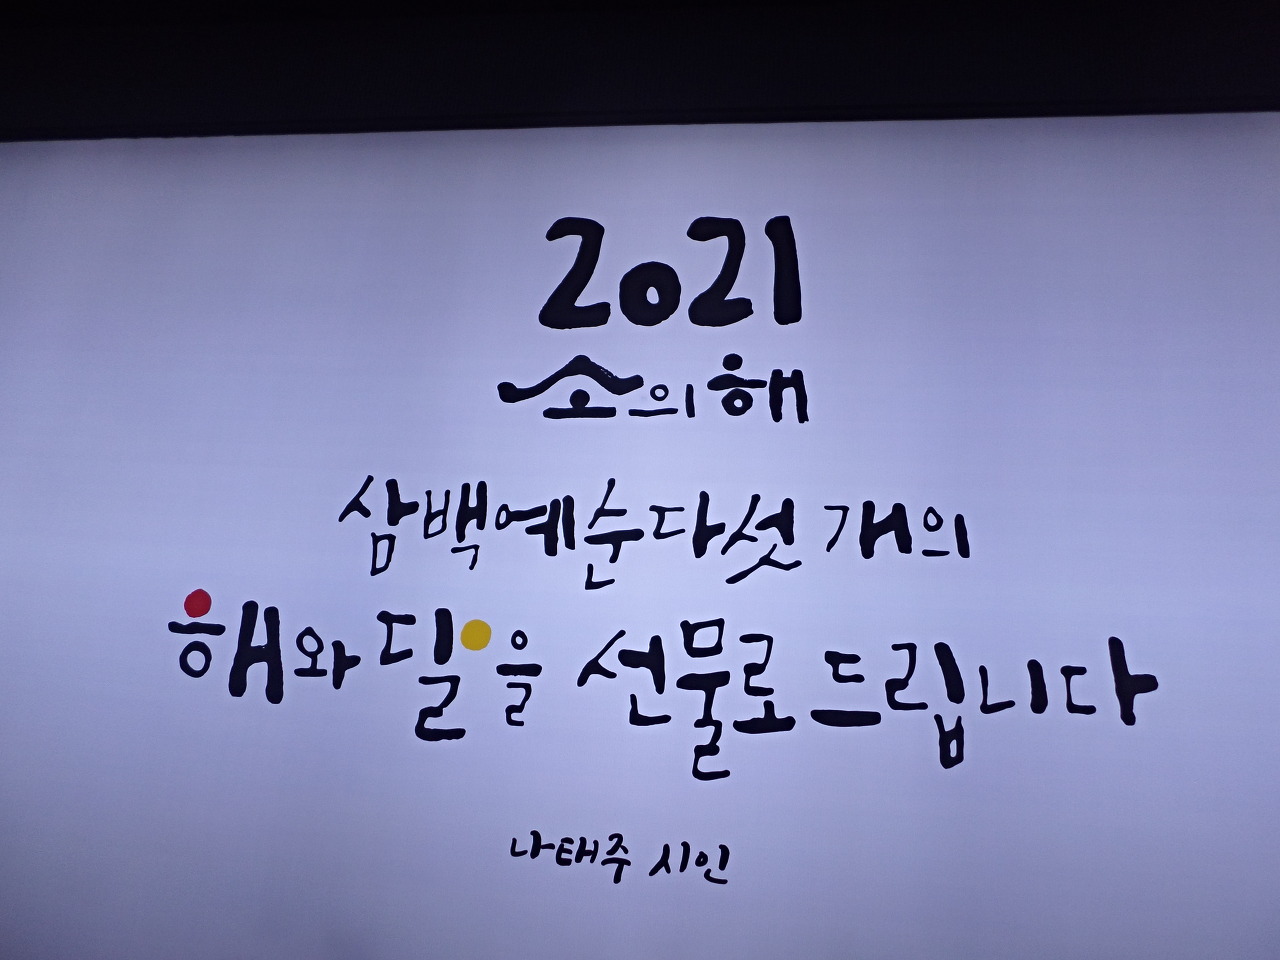 2021
소의 해
삼백예순다섯 개의
해와 달을 선물로 드립니다
나태주 시인